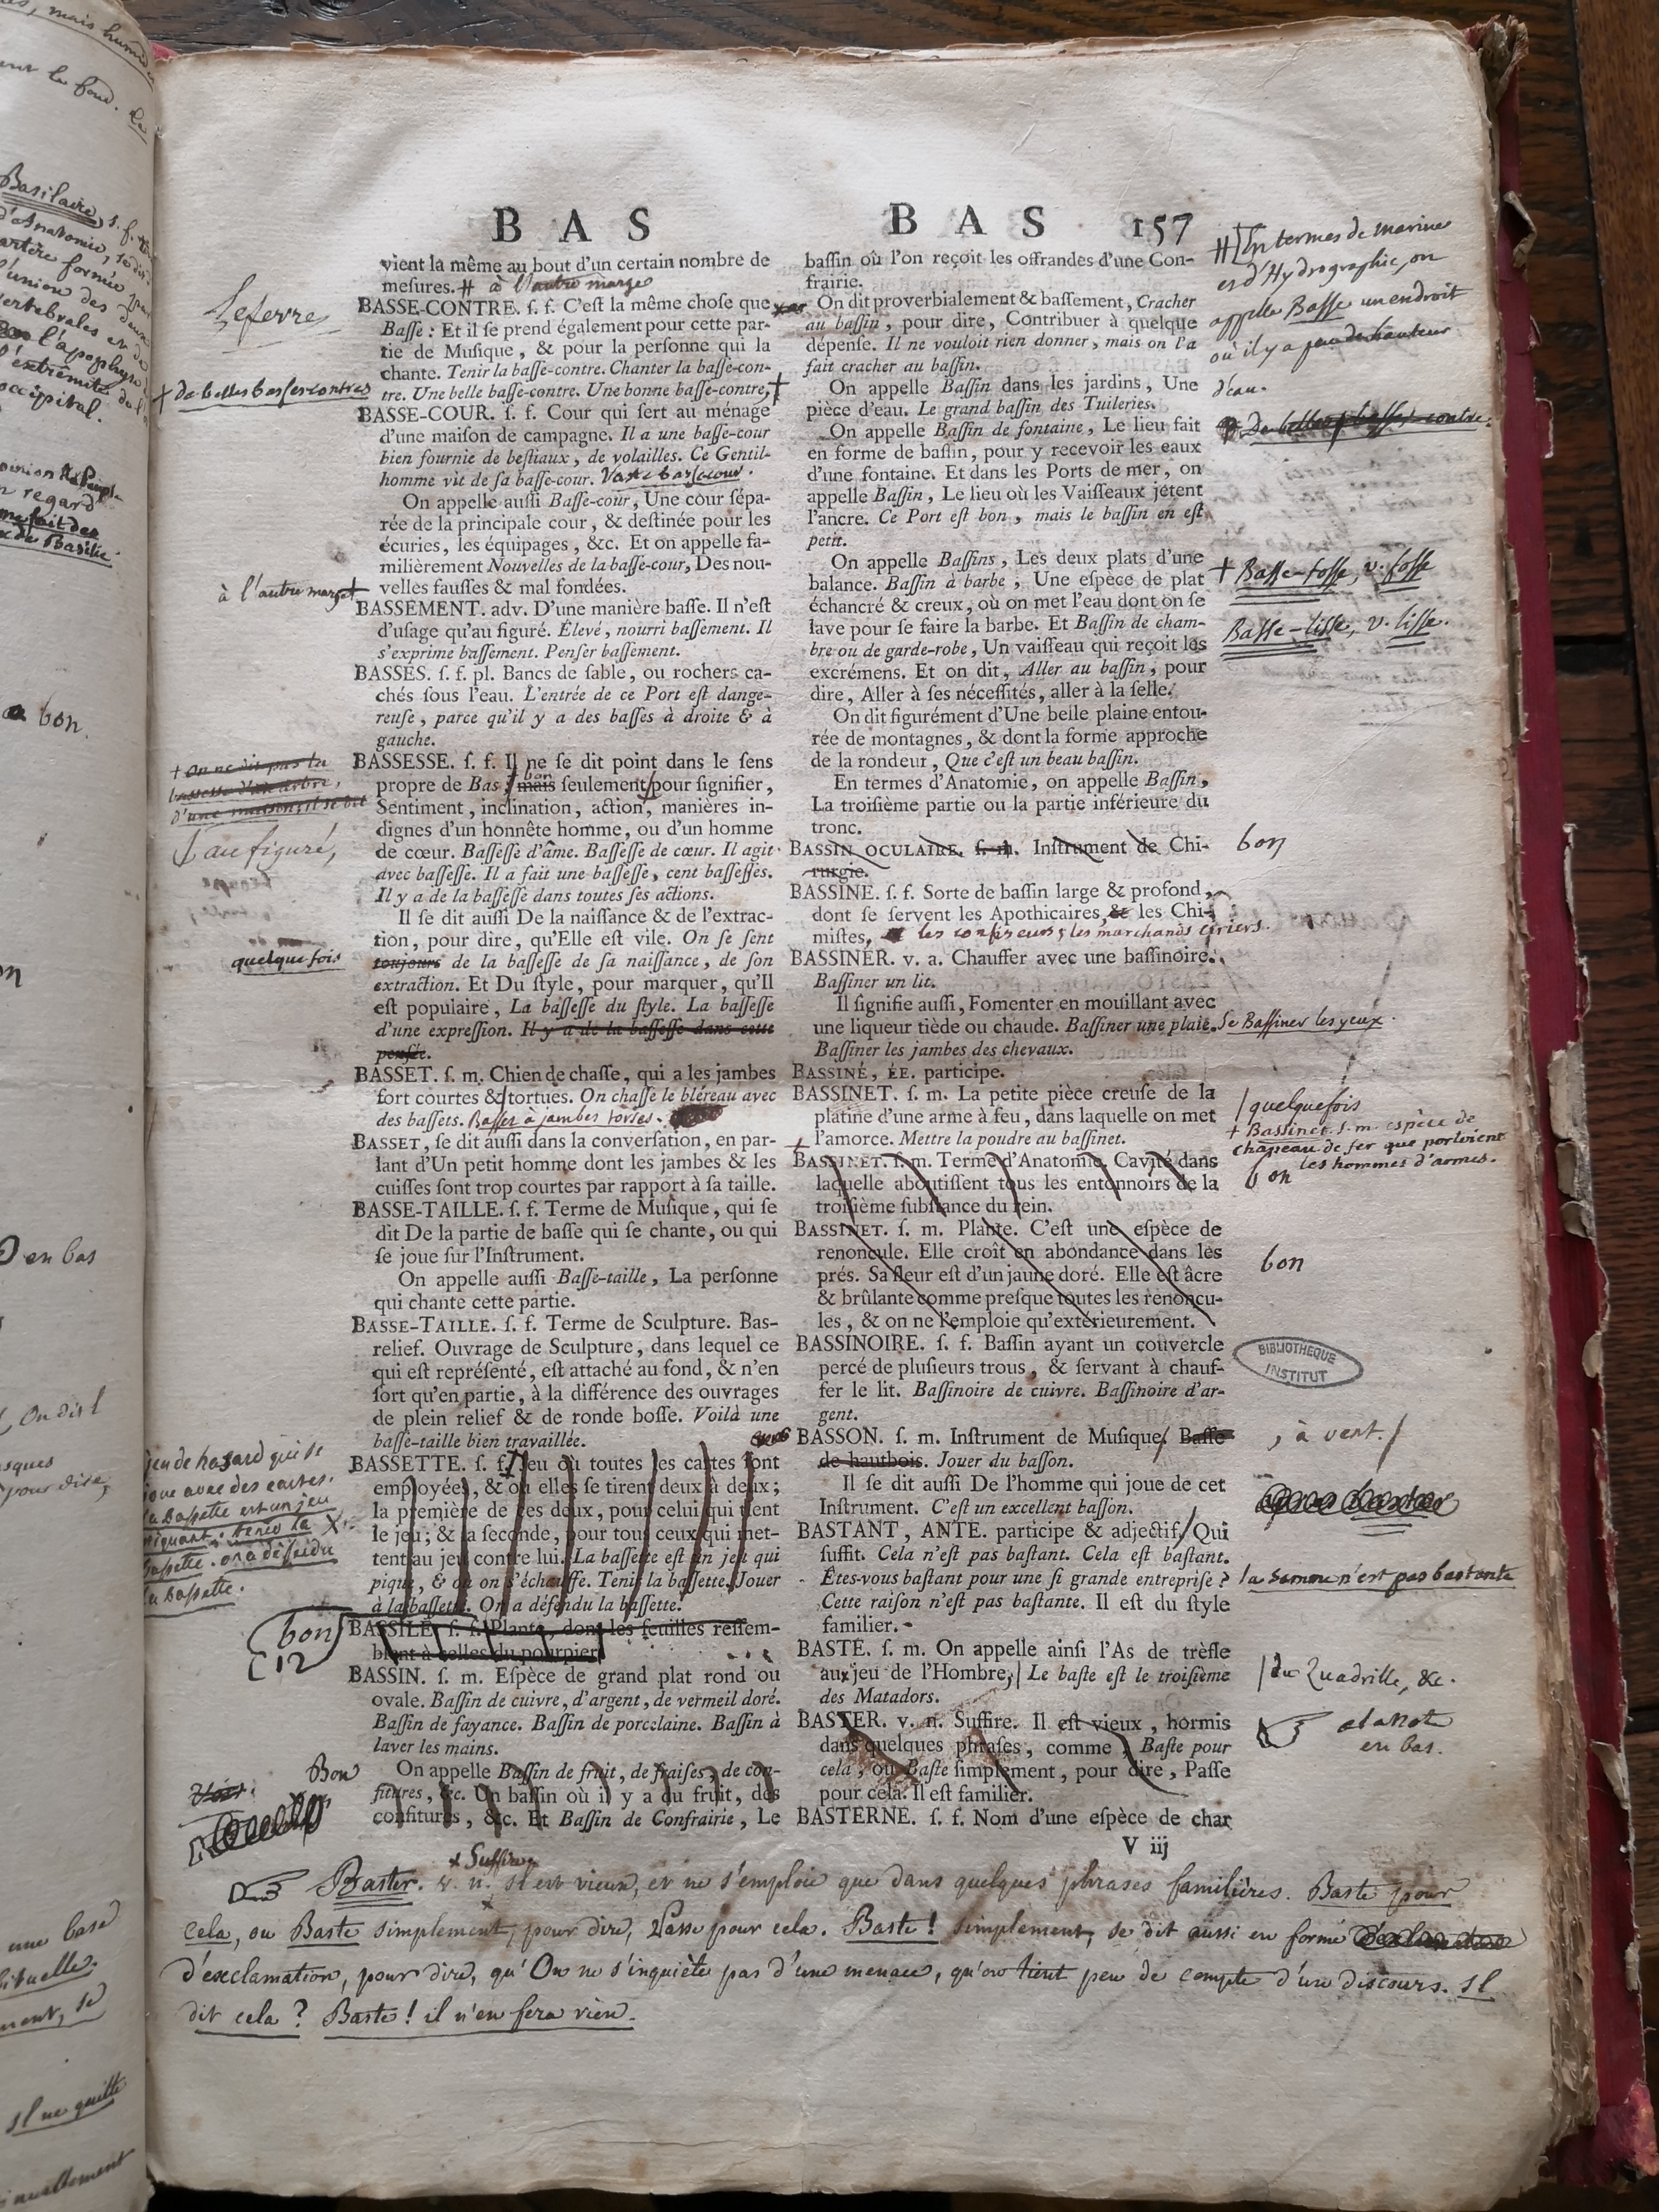 BAS
BAS 157
vient la même au bout d'un certain nombre de
mesures. # à l'autre marge
BASSE-CONTRE. ſ. f. C'eſt la même choſe que
Baſſe : Et il ſe prend également pour cette par-
tie de Muſique, & pour la perſonne qui la
chante. Tenir la baſſe-contre. Chanter la baſſe-con-
tre. Une belle baſſe-contre. Une bonne baſſe-contre. †
BASSE-COUR. ſ. f. Cour qui ſert au ménage
d'une maiſon de campagne. Il a une baſſe-cour
bien fournie de beſtiaux, de volailles. Ce Gentil-
homme vit de ſa baſſe-cour. Vaste basse cour.
On appelle auſſi Baſſe-cour, Une cour ſépa-
rée de la principale cour, & deſtinée pour les
écuries, les équipages, &c. Et on appelle fa-
milièrement Nouvelles de la baſſe-cour, Des nou-
velles fauſſes & mal fondées.
BASSEMENT. adv. D'une manière baſſe. Il n'eſt
d'uſage qu'au figuré. Élevé, nourri baſſement. Il
s'exprime baſſement. Penſer baſſement.
BASSES. ſ. f. pl. Bancs de ſable, ou rochers ca-
chés ſous l'eau. L'entrée de ce Port eſt dange-
reuſe, parce qu'il y a des baſſes à droite & à
gauche.
BASSESSE. ſ. f. Il ne ſe dit point dans le ſens
propre de Bas ; mais ſeulement pour ſignifier,
Sentiment, inclination, action, manières in-
dignes d'un honnête homme, ou d'un homme
de cœur. Baſſeſſe d'âme. Baſſeſſe de cœur. Il agit
avec baſſeſſe. Il a fait une baſſeſſe, cent baſſeſſes.
Il y a de la baſſeſſe dans toutes ſes actions.
Il ſe dit auſſi De la naiſſance & de l'extrac-
tion, pour dire, qu'Elle eſt vile. On ſe ſent
toujours de la baſſeſſe de ſa naiſſance, de ſon
extraction. Et Du ſtyle, pour marquer, qu'Il
eſt populaire, La baſſeſſe du ſtyle. La baſſeſſe
d'une expreſſion. Il y a de la baſſeſſe dans cette
penſée.
BASSET. ſ. m. Chien de chaſſe, qui a les jambes
fort courtes & tortues. On chaſſe le bléreau avec
des baſſets. Basset à jambes torses.
BASSET, ſe dit auſſi dans la converſation, en par-
lant d'Un petit homme dont les jambes & les
cuiſſes ſont trop courtes par rapport à ſa taille.
BASSE-TAILLE. ſ. f. Terme de Muſique, qui ſe
dit De la partie de baſſe qui ſe chante, ou qui
ſe joue ſur l'Inſtrument.
On appelle auſſi Baſſe-taille, La perſonne
qui chante cette partie.
BASSE-TAILLE. ſ. f. Terme de Sculpture. Bas-
relief. Ouvrage de Sculpture, dans lequel ce
qui eſt repréſenté, eſt attaché au fond, & n'en
ſort qu'en partie, à la différence des ouvrages
de plein relief & de ronde boſſe. Voilà une
baſſe-taille bien travaillée.
BASSETTE. ſ. f. Jeu où toutes les cartes ſont
employées, & où elles ſe tirent deux à deux ;
la première de ces deux, pour celui qui tient
le jeu ; & la ſeconde, pour tous ceux qui met-
tent au jeu contre lui. La baſſette eſt un jeu qui
pique, & où on s'échauffe. Tenir la baſſette. Jouer
à la baſſette. On a défendu la baſſette.
BASSILE. ſ. f. Plante, dont les feuilles reſſem-
blent à celles du pourpier.
BASSIN. ſ. m. Eſpèce de grand plat rond ou
ovale. Baſſin de cuivre, d'argent, de vermeil doré.
Baſſin de fayance. Baſſin de porcelaine. Baſſin à
laver les mains.
On appelle Baſſin de fruit, de fraiſes, de con-
fitures, &c. Un baſſin où il y a du fruit, des
confitures, &c. Et Baſſin de Confrairie, Le
baſſin où l'on reçoit les offrandes d'une Con-
frairie.
On dit proverbialement & baſſement, Cracher
au baſſin, pour dire, Contribuer à quelque
dépenſe. Il ne vouloit rien donner, mais on l'a
fait cracher au baſſin.
On appelle Baſſin dans les jardins, Une
pièce d'eau. Le grand baſſin des Tuileries.
On appelle Baſſin de fontaine, Le lieu fait
en forme de baſſin, pour y recevoir les eaux
d'une fontaine. Et dans les Ports de mer, on
appelle Baſſin, Le lieu où les Vaiſſeaux jètent
l'ancre. Ce Port eſt bon, mais le baſſin en eſt
petit.
On appelle Baſſins, Les deux plats d'une
balance. Baſſin à barbe, Une eſpèce de plat
échancré & creux, où on met l'eau dont on ſe
lave pour ſe faire la barbe. Et Baſſin de cham-
bre ou de garde-robe, Un vaiſſeau qui reçoit les
excrémens. Et on dit, Aller au baſſin, pour
dire, Aller à ſes néceſſités, aller à la ſelle.
On dit figurément d'Une belle plaine entou-
rée de montagnes, & dont la forme approche
de la rondeur, Que c'eſt un beau baſſin.
En termes d'Anatomie, on appelle Baſſin,
La troiſième partie ou la partie inférieure du
tronc.
BASSIN OCULAIRE. ſ. m. Inſtrument de Chi-
rurgie.
BASSINE. ſ. f. Sorte de baſſin large & profond,
dont ſe ſervent les Apothicaires, & les Chi-
miſtes, les confiseurs, les marchands ciriers.
BASSINER. v. a. Chauffer avec une baſſinoire.
Baſſiner un lit.
Il ſignifie auſſi, Fomenter en mouillant avec
une liqueur tiède ou chaude. Baſſiner une plaie. Se Bassiner les yeux.
Baſſiner les jambes des chevaux.
BASSINÉ, ÉE. participe.
BASSINET. ſ. m. La petite pièce creuſe de la
platine d'une arme à feu, dans laquelle on met
l'amorce. Mettre la poudre au baſſinet.
BASSINET. ſ. m. Terme d'Anatomie. Cavité dans
laquelle aboutiſſent tous les entonnoirs de la
troiſième ſubſtance du rein.
BASSINET. ſ. m. Plante. C'eſt une eſpèce de
renoncule. Elle croît en abondance dans les
prés. Sa fleur eſt d'un jaune doré. Elle eſt âcre
& brûlante comme preſque toutes les renoncu-
les, & on ne l'emploie qu'extérieurement.
BASSINOIRE. ſ. f. Baſſin ayant un couvercle
percé de pluſieurs trous, & ſervant à chauf-
fer le lit. Baſſinoire de cuivre. Baſſinoire d'ar-
gent.
BASSON. ſ. m. Inſtrument de Muſique. Baſſe
de hautbois. Jouer du baſſon.
Il ſe dit auſſi De l'homme qui joue de cet
Inſtrument. C'eſt un excellent baſſon.
BASTANT, ANTE. participe & adjectif. Qui
ſuffit. Cela n'eſt pas baſtant. Cela eſt baſtant.
Êtes-vous baſtant pour une ſi grande entrepriſe ?
Cette raiſon n'eſt pas baſtante. Il eſt du ſtyle
familier.
BASTE. ſ. m. On appelle ainſi l'As de trèfle
au jeu de l'Hombre, Le baſte eſt le troiſième
des Matadors.
BASTER. v. n. Suffire. Il eſt vieux, hormis
dans quelques phraſes, comme, Baſte pour
cela, ou Baſte ſimplement, pour dire, Paſſe
pour cela. Il eſt familier.
BASTERNE. ſ. f. Nom d'une eſpèce de char
V iij
Leferre
† de belles basses contres
à l'autre marge †
† on ne dit pas la
bassesse d'un arbre,
d'une maison, il se dit
au figuré,
quelque fois
jeu de hasard qui se
joue avec des cartes.
la Bassette est un jeu
piquant. tenir la
bassette. on a défendu
la bassette.
bon
12
Bon
# En termes de marine
et d'Hydrographie, on
appelle Basse un endroit
où il y a peu de hauteur
d'eau.
De belles basses-contre.
† Basse-fosse, v. fosse
Basse-lisse, v. lisse.
bon
/ quelquefois
+ Bassinet. s. m. espèce de
chapeau de fer que portoient
les hommes d'armes.
bon
bon
BIBLIOTHEQUE
INSTITUT
, à vent. /
la somme n'est pas bastante
/ du Quadrille, &c.
à la note
en bas.
+ Suffire
Baster. v. n. Il est vieux, et ne s'emploie que dans quelques phrases familières. Baste pour
cela, ou Baste simplement, pour dire, Passe pour cela. Baste ! simplement, se dit aussi en forme
d'exclamation, pour dire, qu'On ne s'inquiète pas d'une menace, qu'on tient peu de compte d'un discours. Il
dit cela ? Baste ! il n'en fera rien.
Basilaire, s. f.
d'Anatomie, se dit
artère formée par
l'union des deux
vertebrales en de
l'apophyse
l'extrêmité de l'
occipital.
bon.
en bas
On dit
pour dire,
une base
Il ne quitte